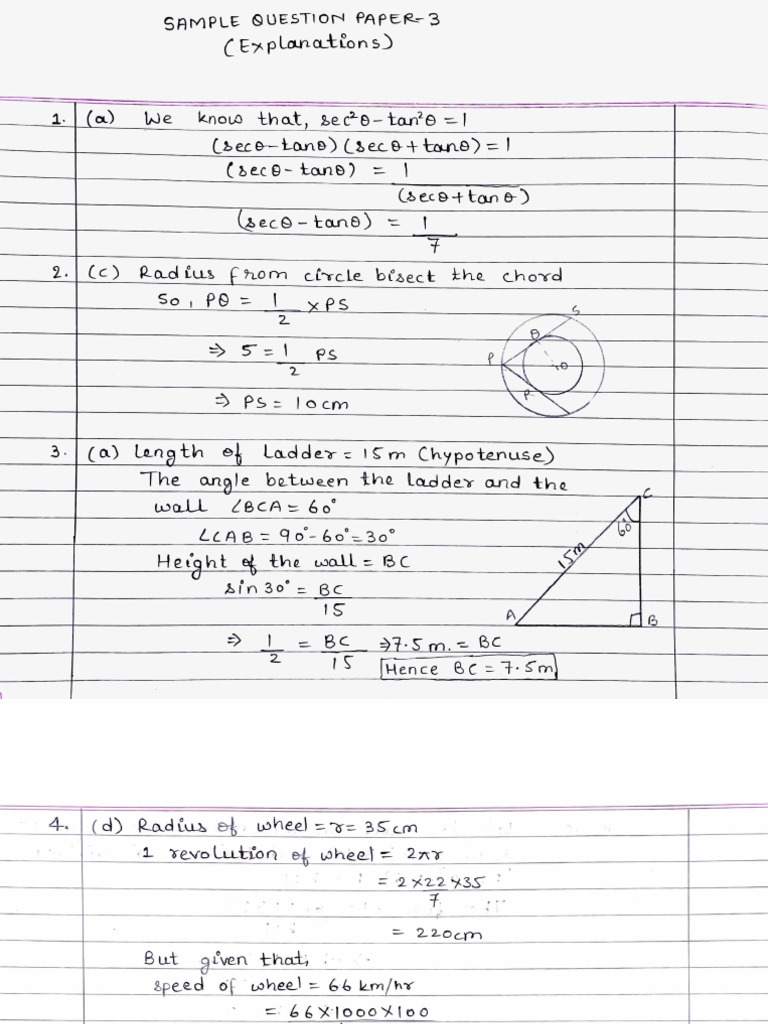 SAMPLE QUESTION PAPER-3
(Explanations)
1. (a) We know that, sec²θ-tan²θ = 1
(secθ-tanθ) (secθ+tanθ) = 1
(secθ-tanθ) = 1
(secθ+tanθ)
(secθ-tanθ) = 1
7
2. (c) Radius from circle bisect the chord
So, PQ = 1 × PS
2
⇒ 5 = 1 PS
2
⇒ PS = 10cm
S
Q
P
O
R
3. (a) Length of Ladder = 15m (hypotenuse)
The angle between the ladder and the
wall ∠BCA = 60°
∠CAB = 90°-60° = 30°
Height of the wall = BC
sin 30° = BC
15
⇒ 1 = BC ⇒ 7.5 m. = BC
2 15
Hence BC = 7.5m
C
60°
15m
A
B
4. (d) Radius of wheel = r = 35 cm
1 revolution of wheel = 2πr
= 2×22×35
7
= 220cm
But given that,
speed of wheel = 66 km/hr
= 66×1000×100